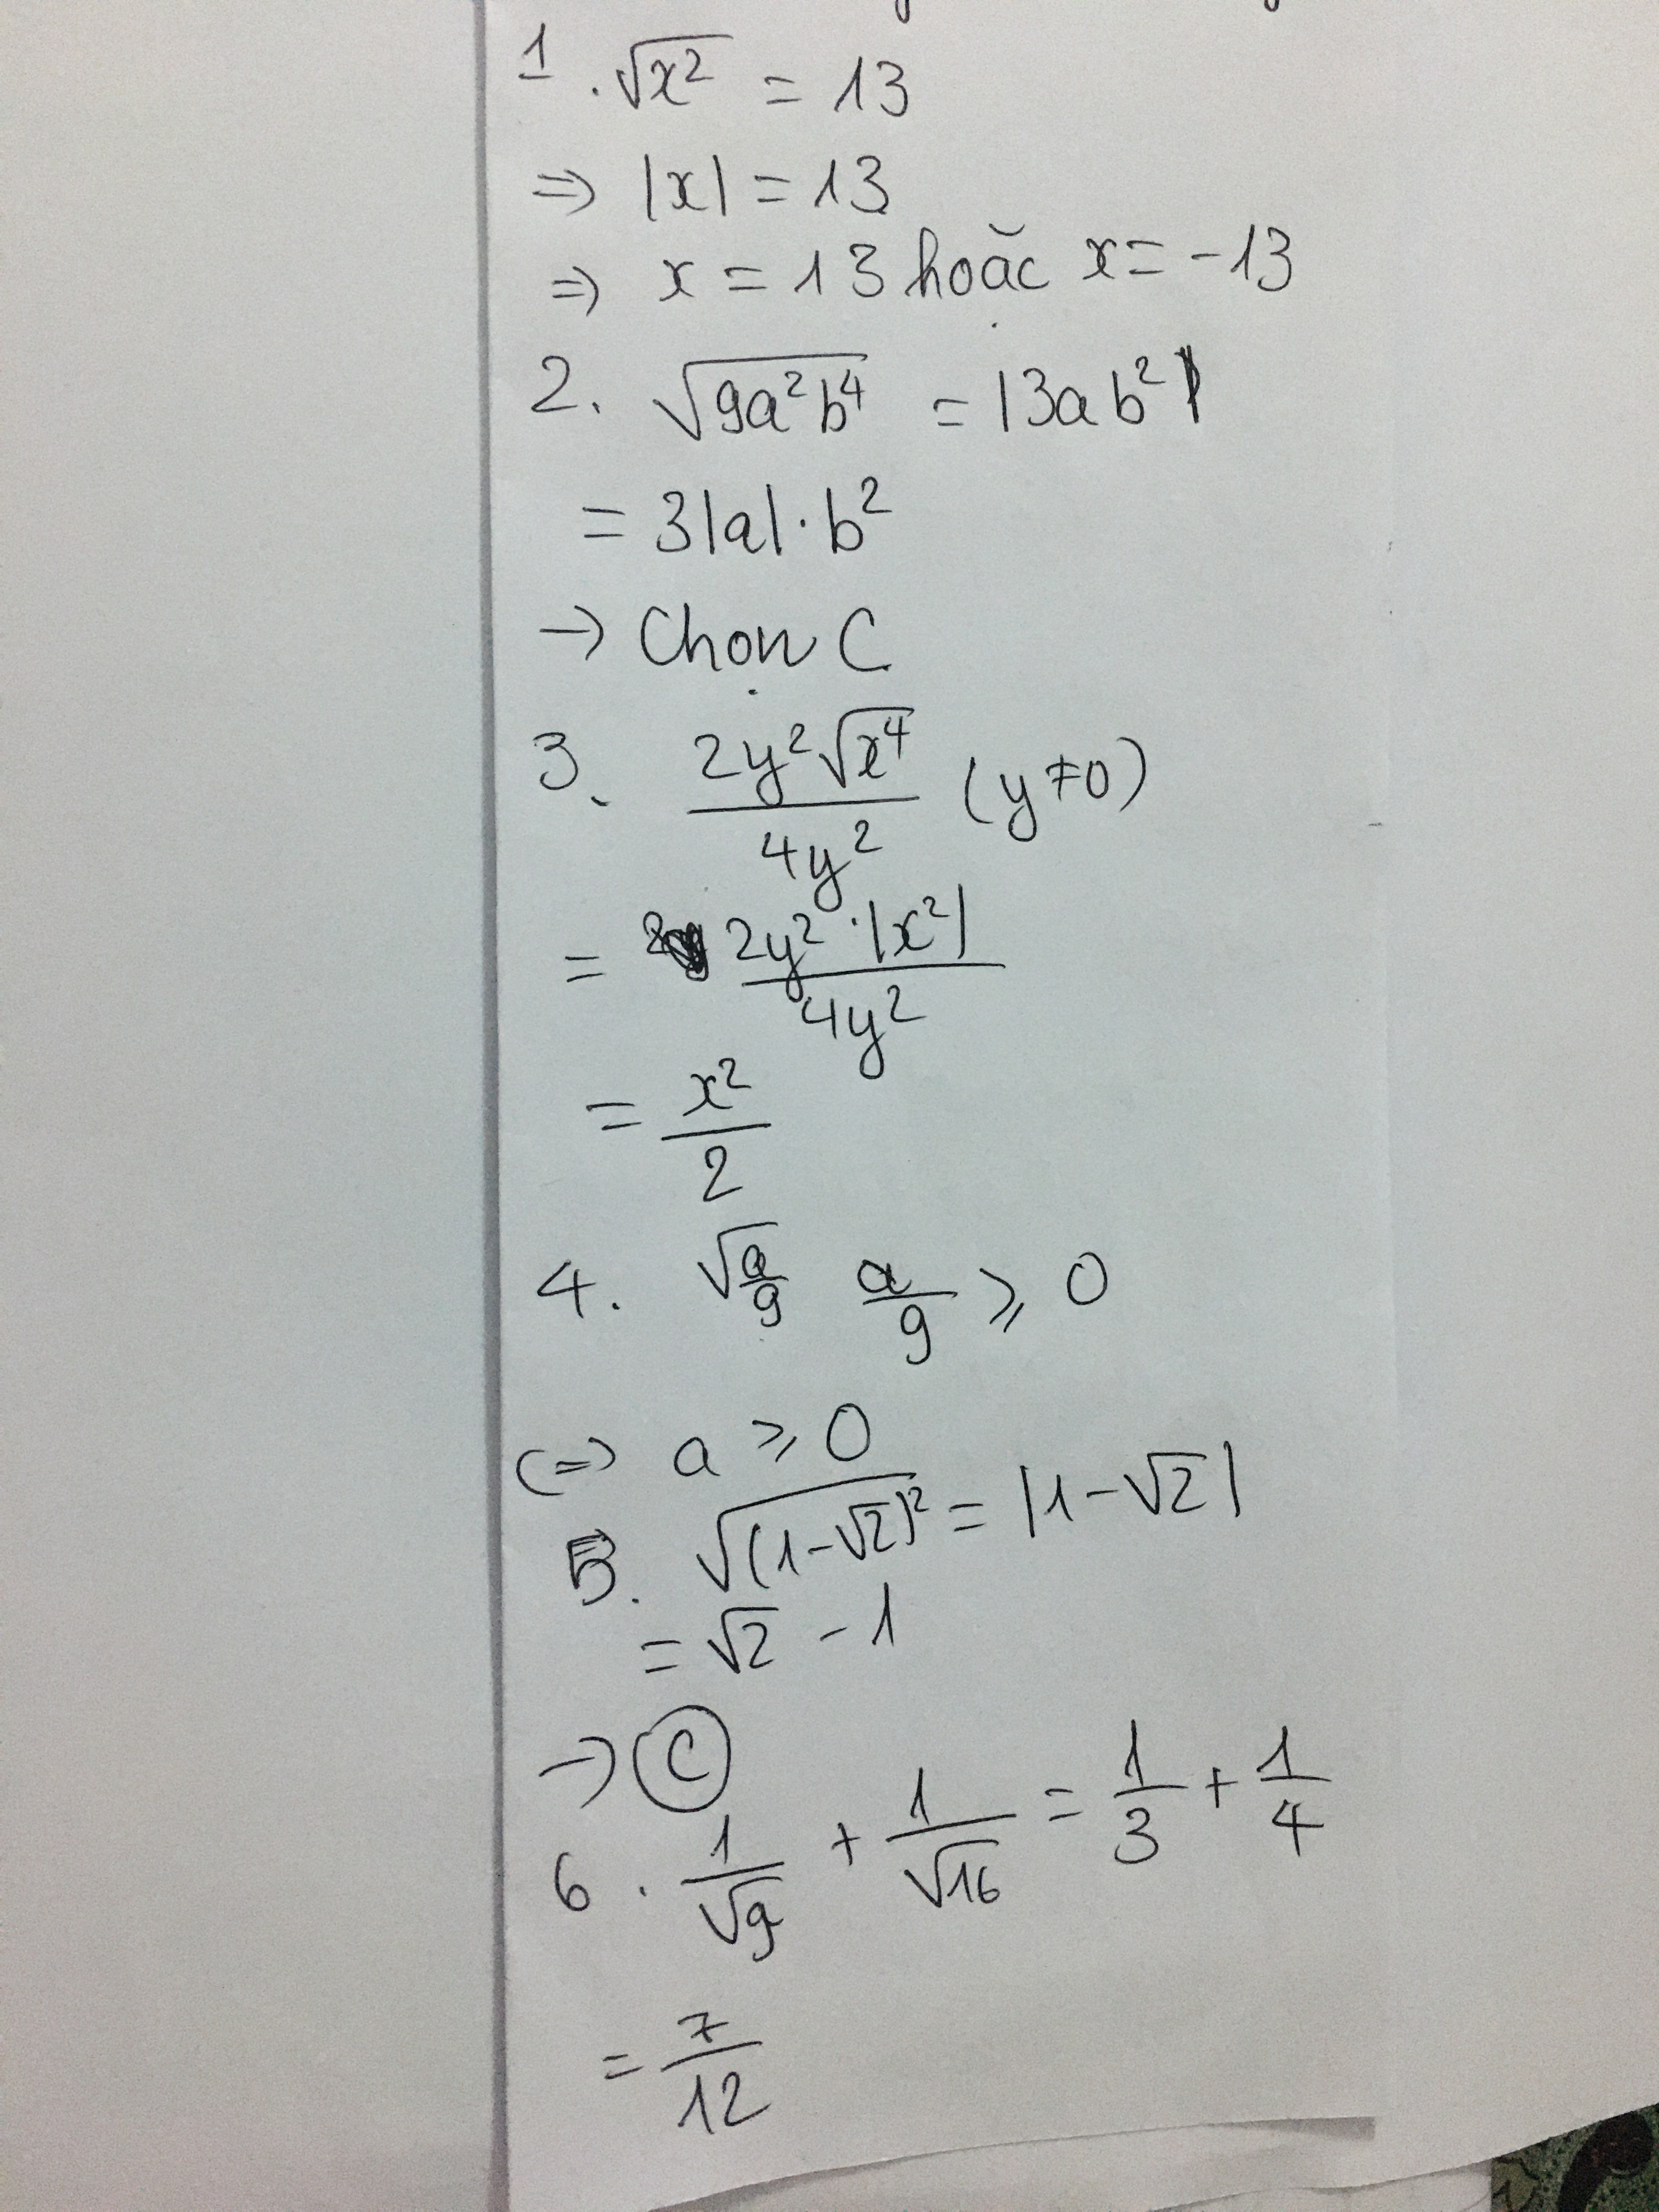 1. √x² = 13
=> |x| = 13
=> x = 13 hoặc x = -13
2. √9a²b⁴ = |3ab²|
= 3|a|·b²
→ Chọn C
3. 2y²√x⁴ / 4y² (y≠0)
= 2y²·|x²| / 4y²
= x² / 2
4. √a/9 a/9 ⩾ 0
<=> a ⩾ 0
5. √(1-√2)² = |1-√2|
= √2 - 1
→ C
6. 1/√9 + 1/√16 = 1/3 + 1/4
= 7/12